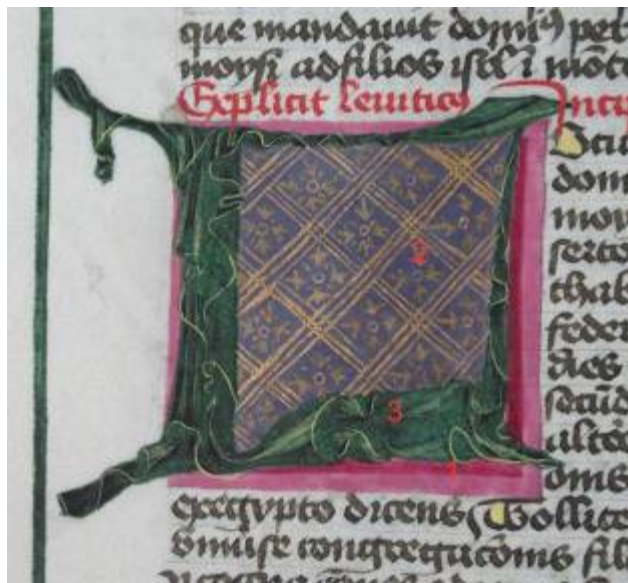 que mandauit domiꝰ pet
moysi ad filios isrl ī mōte
Explicit leuiticꝰ Incip
dom
moy
serto
thab
feder
dies
secūd
altē
2
3
1
onis
ex egypto dicens Tollite
vniuse congregacōnis fil